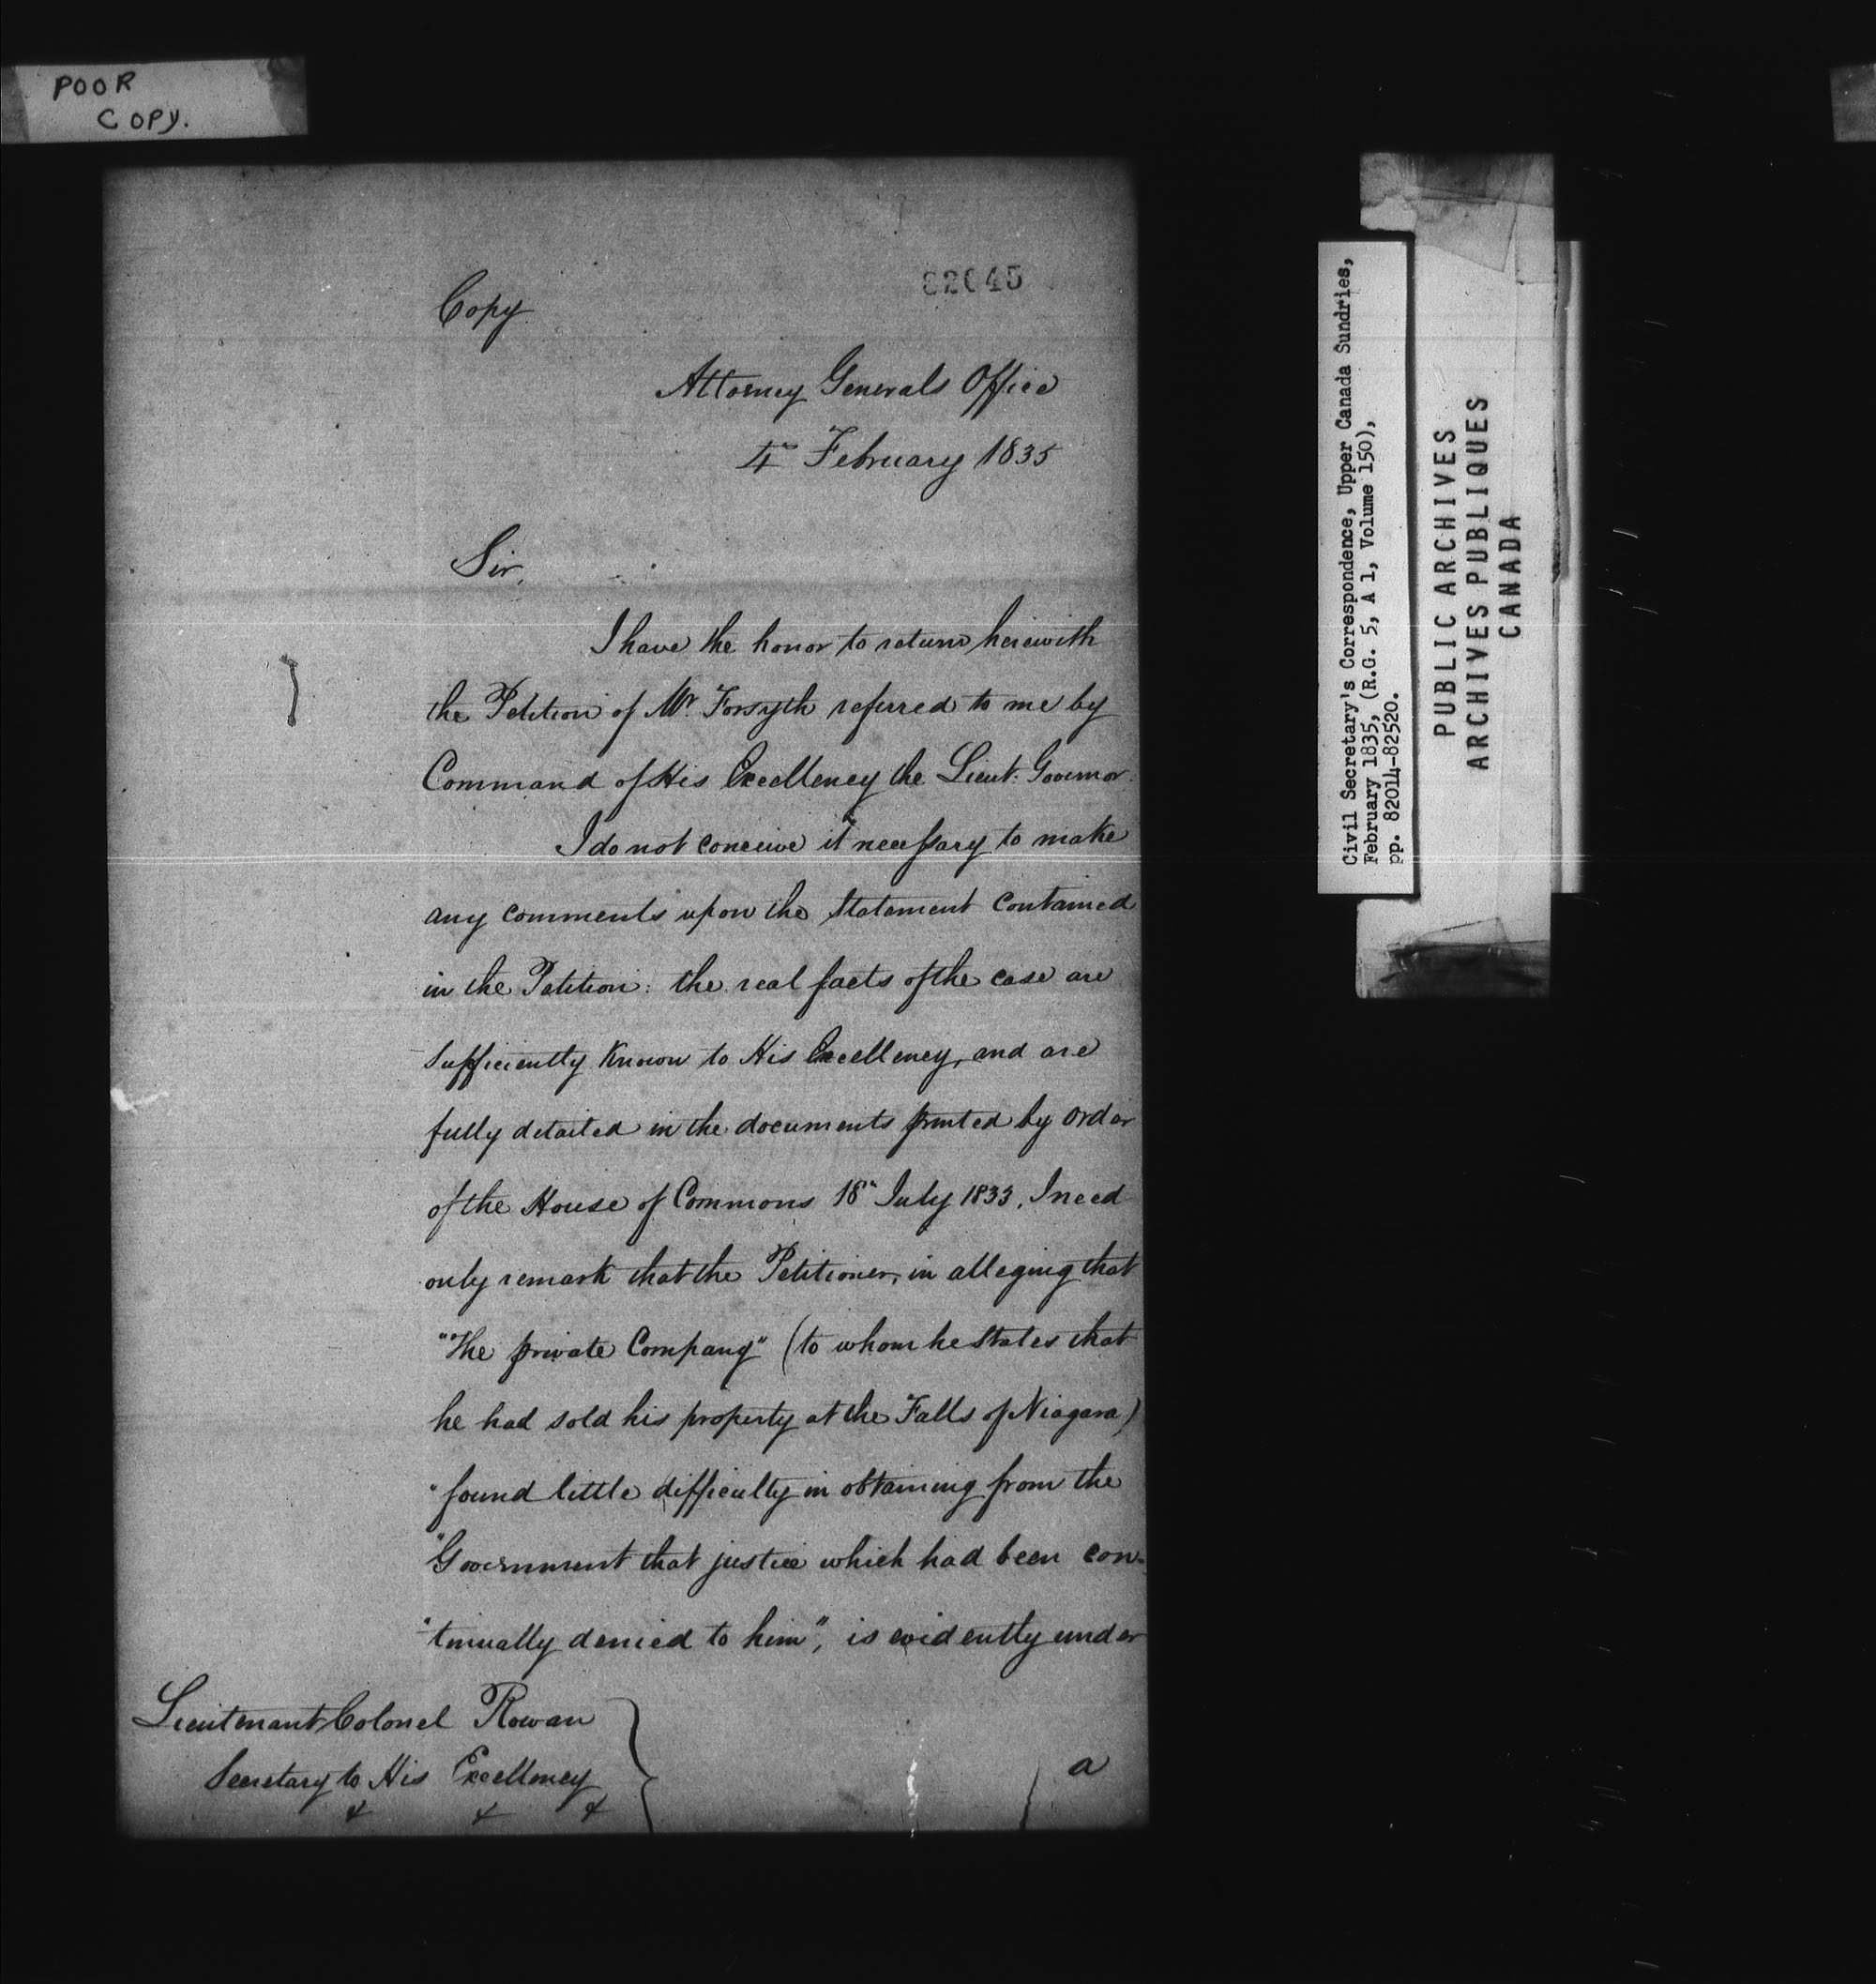 POOR
COPY.
82045
Copy
Attorney Generals Office
4th February 1835
Sir,
I have the honor to return herewith
the Petition of Mr. Forsyth referred to me by
Command of His Excellency the Lieut: Governor.
I do not conceive it necessary to make
any comments upon the Statement contained
in the Petition: the real facts of the case are
sufficiently known to His Excellency, and are
fully detailed in the documents printed by order
of the House of Commons 18th July 1833. I need
only remark that the Petitioner, in alleging that
"The private Company" (to whom he States that
he had sold his property at the Falls of Niagara)
"found little difficulty in obtaining from the
"Government that justice which had been con-
"tinually denied to him", is evidently under
Lieutenant Colonel Rowan
Secretary to His Excellency
& & &
a
Civil Secretary's Correspondence, Upper Canada Sundries,
February 1835, (R.G. 5, A 1, Volume 150),
pp. 82014-82520.
PUBLIC ARCHIVES
ARCHIVES PUBLIQUES
CANADA